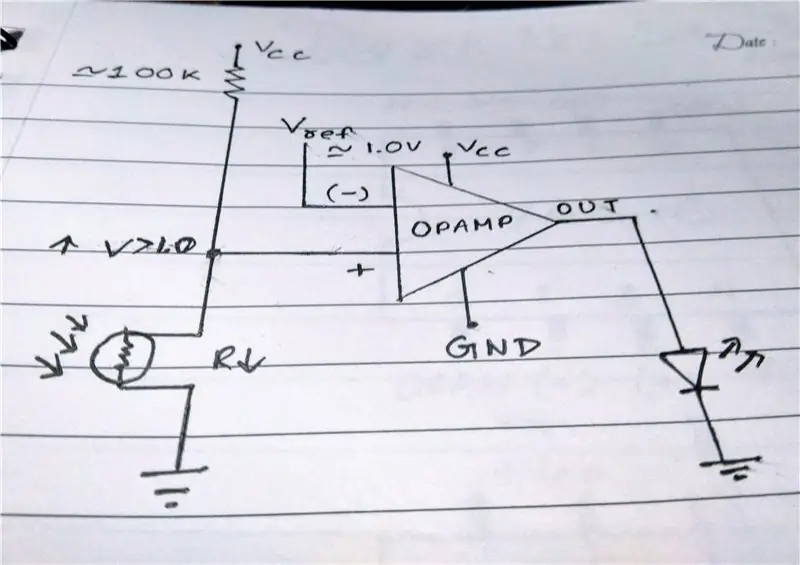 Date:
Vcc
≃100K
Vref
≃ 1.0V
Vcc
(-)
OPAMP
OUT
↑ V>1.0
+
R↓
GND